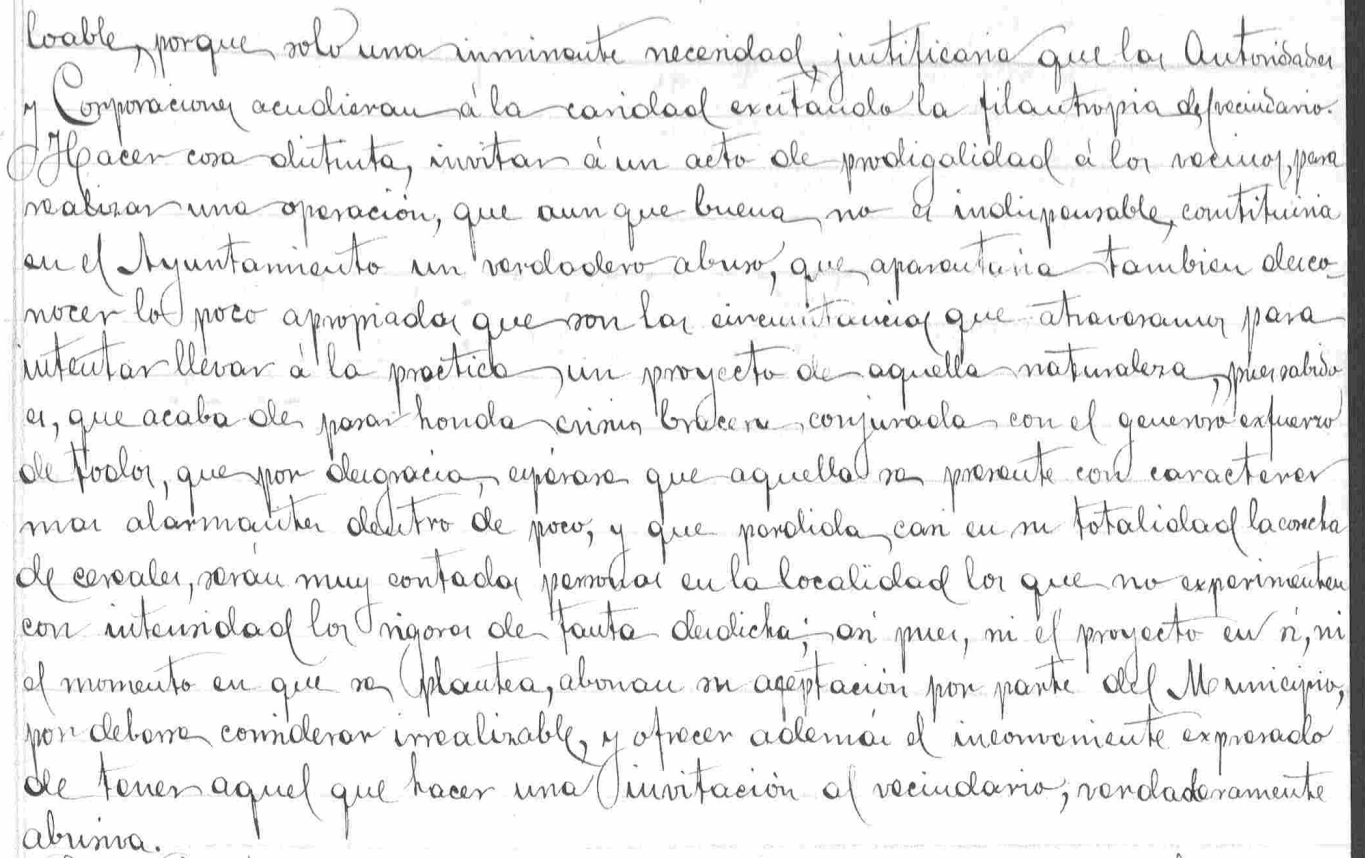 loable, porque solo una inminente necesidad, justificaria que las Autoridades
y Corporaciones acudieran á la caridad excitando la filantropia del vecindario.
Hacer cosa distinta, invitar á un acto de prodigalidad á los vecinos, para
realizar una operación, que aun que buena, no es indispensable, constituiria
en el Ayuntamiento un verdadero abuso, que aparentaria tambien desco-
nocer lo poco apropiadas que son las circunstancias que atravesamos para
intentar llevar á la practica, un proyecto de aquella naturaleza, pues sabido
es, que acaba de pasar honda crisis bracera, conjurada con el generoso esfuerzo
de todos, que por desgracia, espérase que aquella se presente con caracteres
mas alarmantes dentro de poco, y que perdida, casi en su totalidad la cosecha
de cereales, serán muy contadas personas en la localidad los que no experimenten
con intensidad los rigores de tanta desdicha; asi pues, ni el proyecto en si, ni
el momento en que se plantea, abonan su aceptación por parte del Municipio,
por deberse considerar irrealizable, y ofrecer además el inconveniente expresado
de tener aquel que hacer una invitación al vecindario, verdaderamente
abusiva.